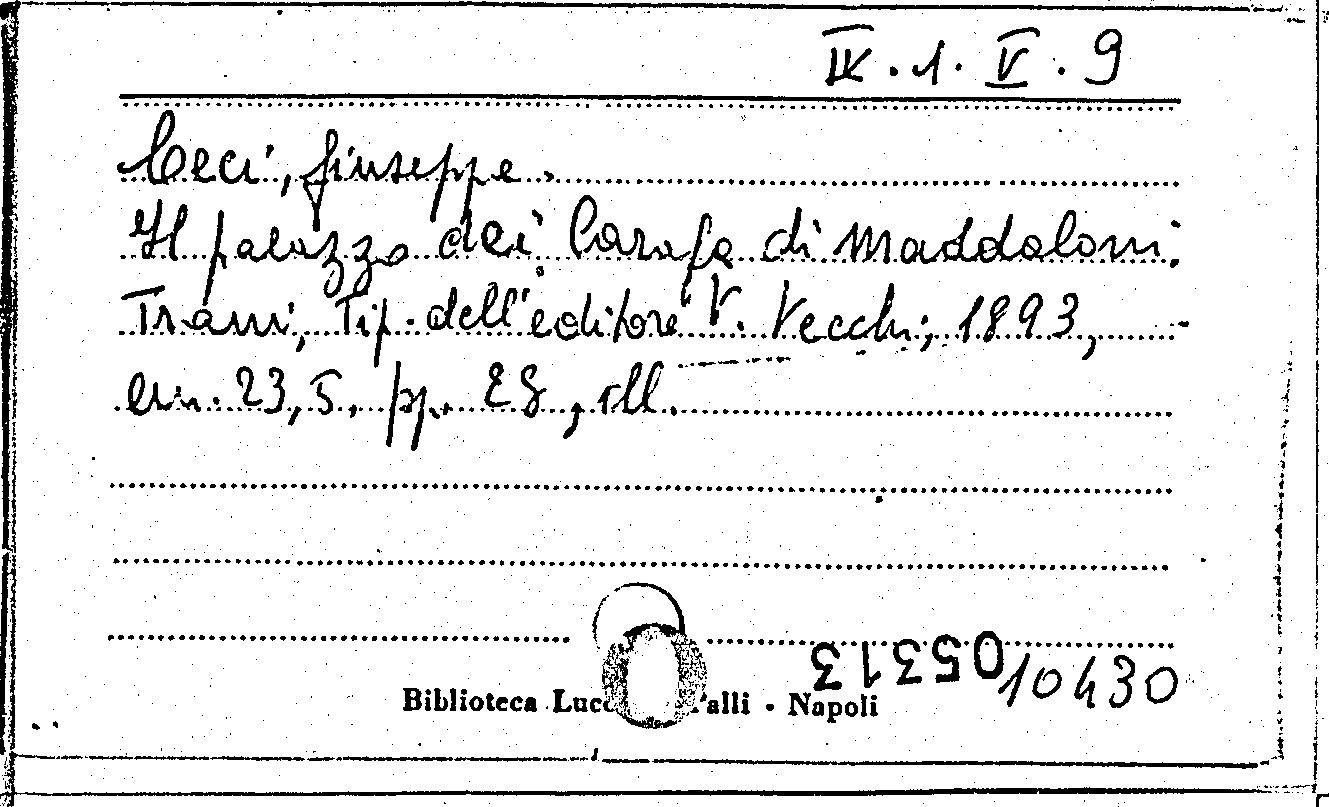 IV.1.V.9
Ceci, Giuseppe.
Il palazzo dei Carafa di Maddaloni.
Trani, Tip. dell'editore V. Vecchi, 1893,
cm. 23,5. pp. 28, ill.
05313
10430
Biblioteca Luc alli - Napoli